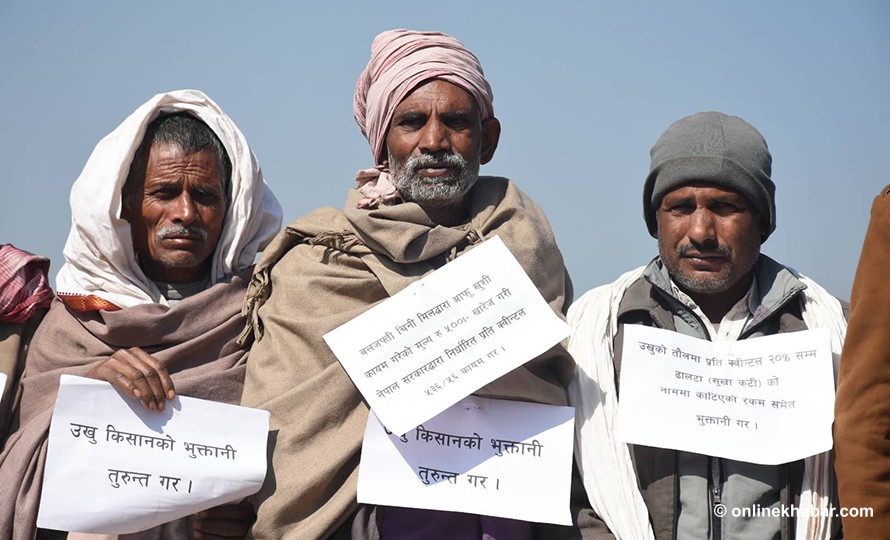 उखु किसानको भुक्तानी
तुरुन्त गर ।
बलजफ्ती चिनी मिलद्वारा आफू खुशी
कायम गरेको मुल्य रु ५००।- खारेज गरी
नेपाल सरकारद्वारा निर्धारित प्रति क्वीन्टल
५३६/५६ कायम गर ।
उखु किसानको भुक्तानी
तुरुन्त गर ।
उखुको तौलमा प्रति क्वीन्टल २०% सम्म
ढालटा (सुखा कटी) को
नाममा काटिएको रकम समेत
भुक्तानी गर ।
© onlinekhabar.com